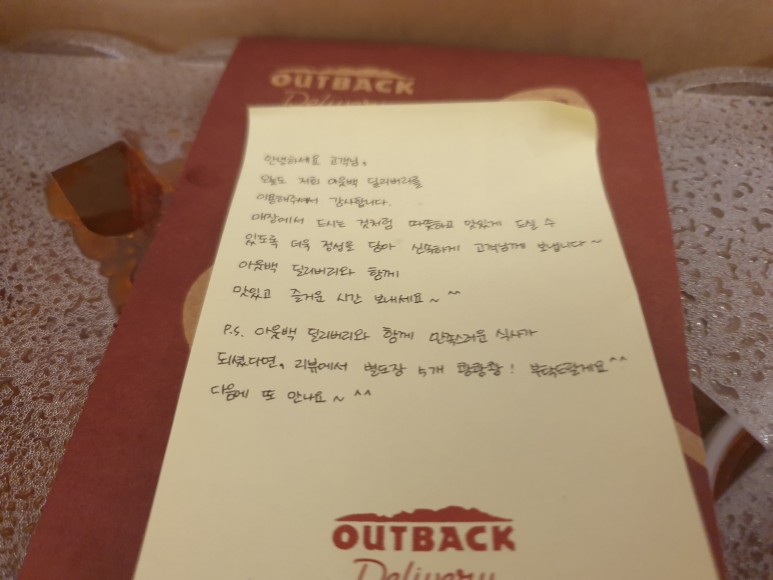 OUTBACK
Delivery
안녕하세요 고객님,
오늘도 저희 아웃백 딜리버리를
이용해주셔서 감사합니다.
매장에서 드시는 것처럼 따뜻하고 맛있게 드실 수
있도록 더욱 정성을 담아 신속하게 고객님께 보냅니다~
아웃백 딜리버리와 함께
맛있고 즐거운 시간 보내세요~ ^^
P.S. 아웃백 딜리버리와 함께 만족스러운 식사가
되셨다면, 리뷰에서 별도장 5개 쾅쾅쾅! 부탁드랄게요^^
다음에 또 만나요~ ^^
OUTBACK
Delivery